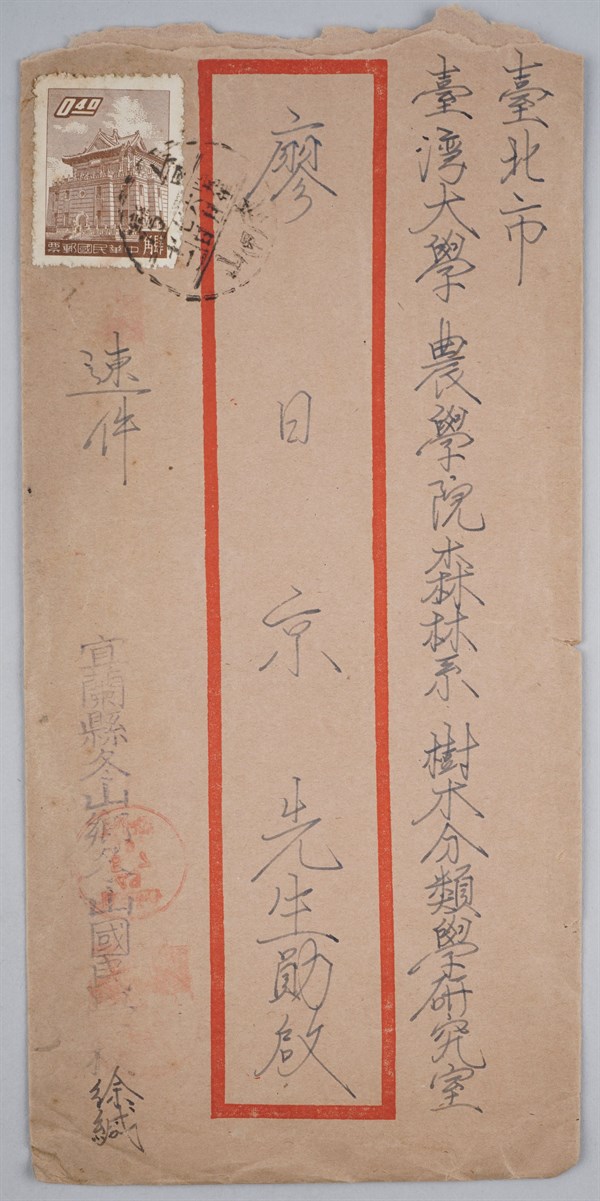 臺北市
臺灣大學 農學院森林系 樹木分類學研究室
廖日京先生勛啟
0.40
票郵國民華中
速件
宜蘭縣冬山鄉冬山國民
徐緘